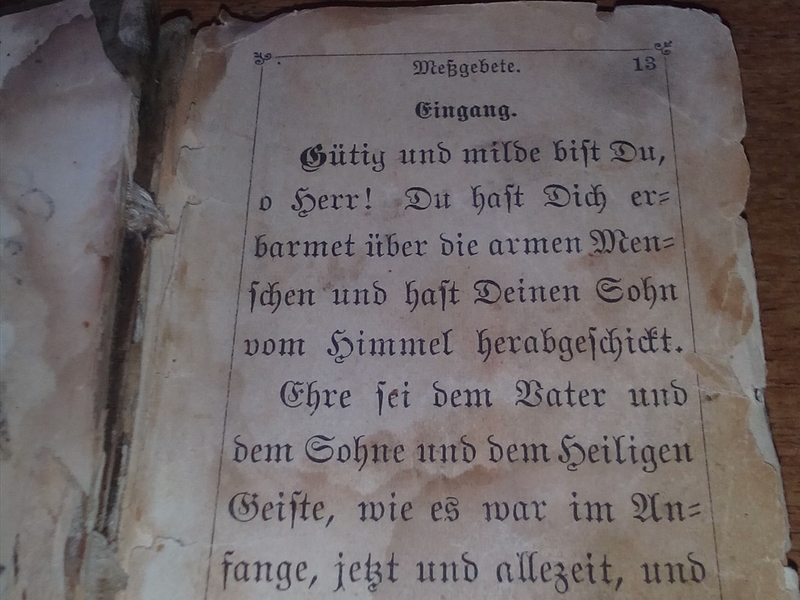 Meßgebete. 13
Eingang.
Gütig und milde bist Du,
o Herr! Du hast Dich er=
barmet über die armen Men=
schen und hast Deinen Sohn
vom Himmel herabgeschickt.
Ehre sei dem Vater und
dem Sohne und dem Heiligen
Geiste, wie es war im An=
fange, jetzt und allezeit, und